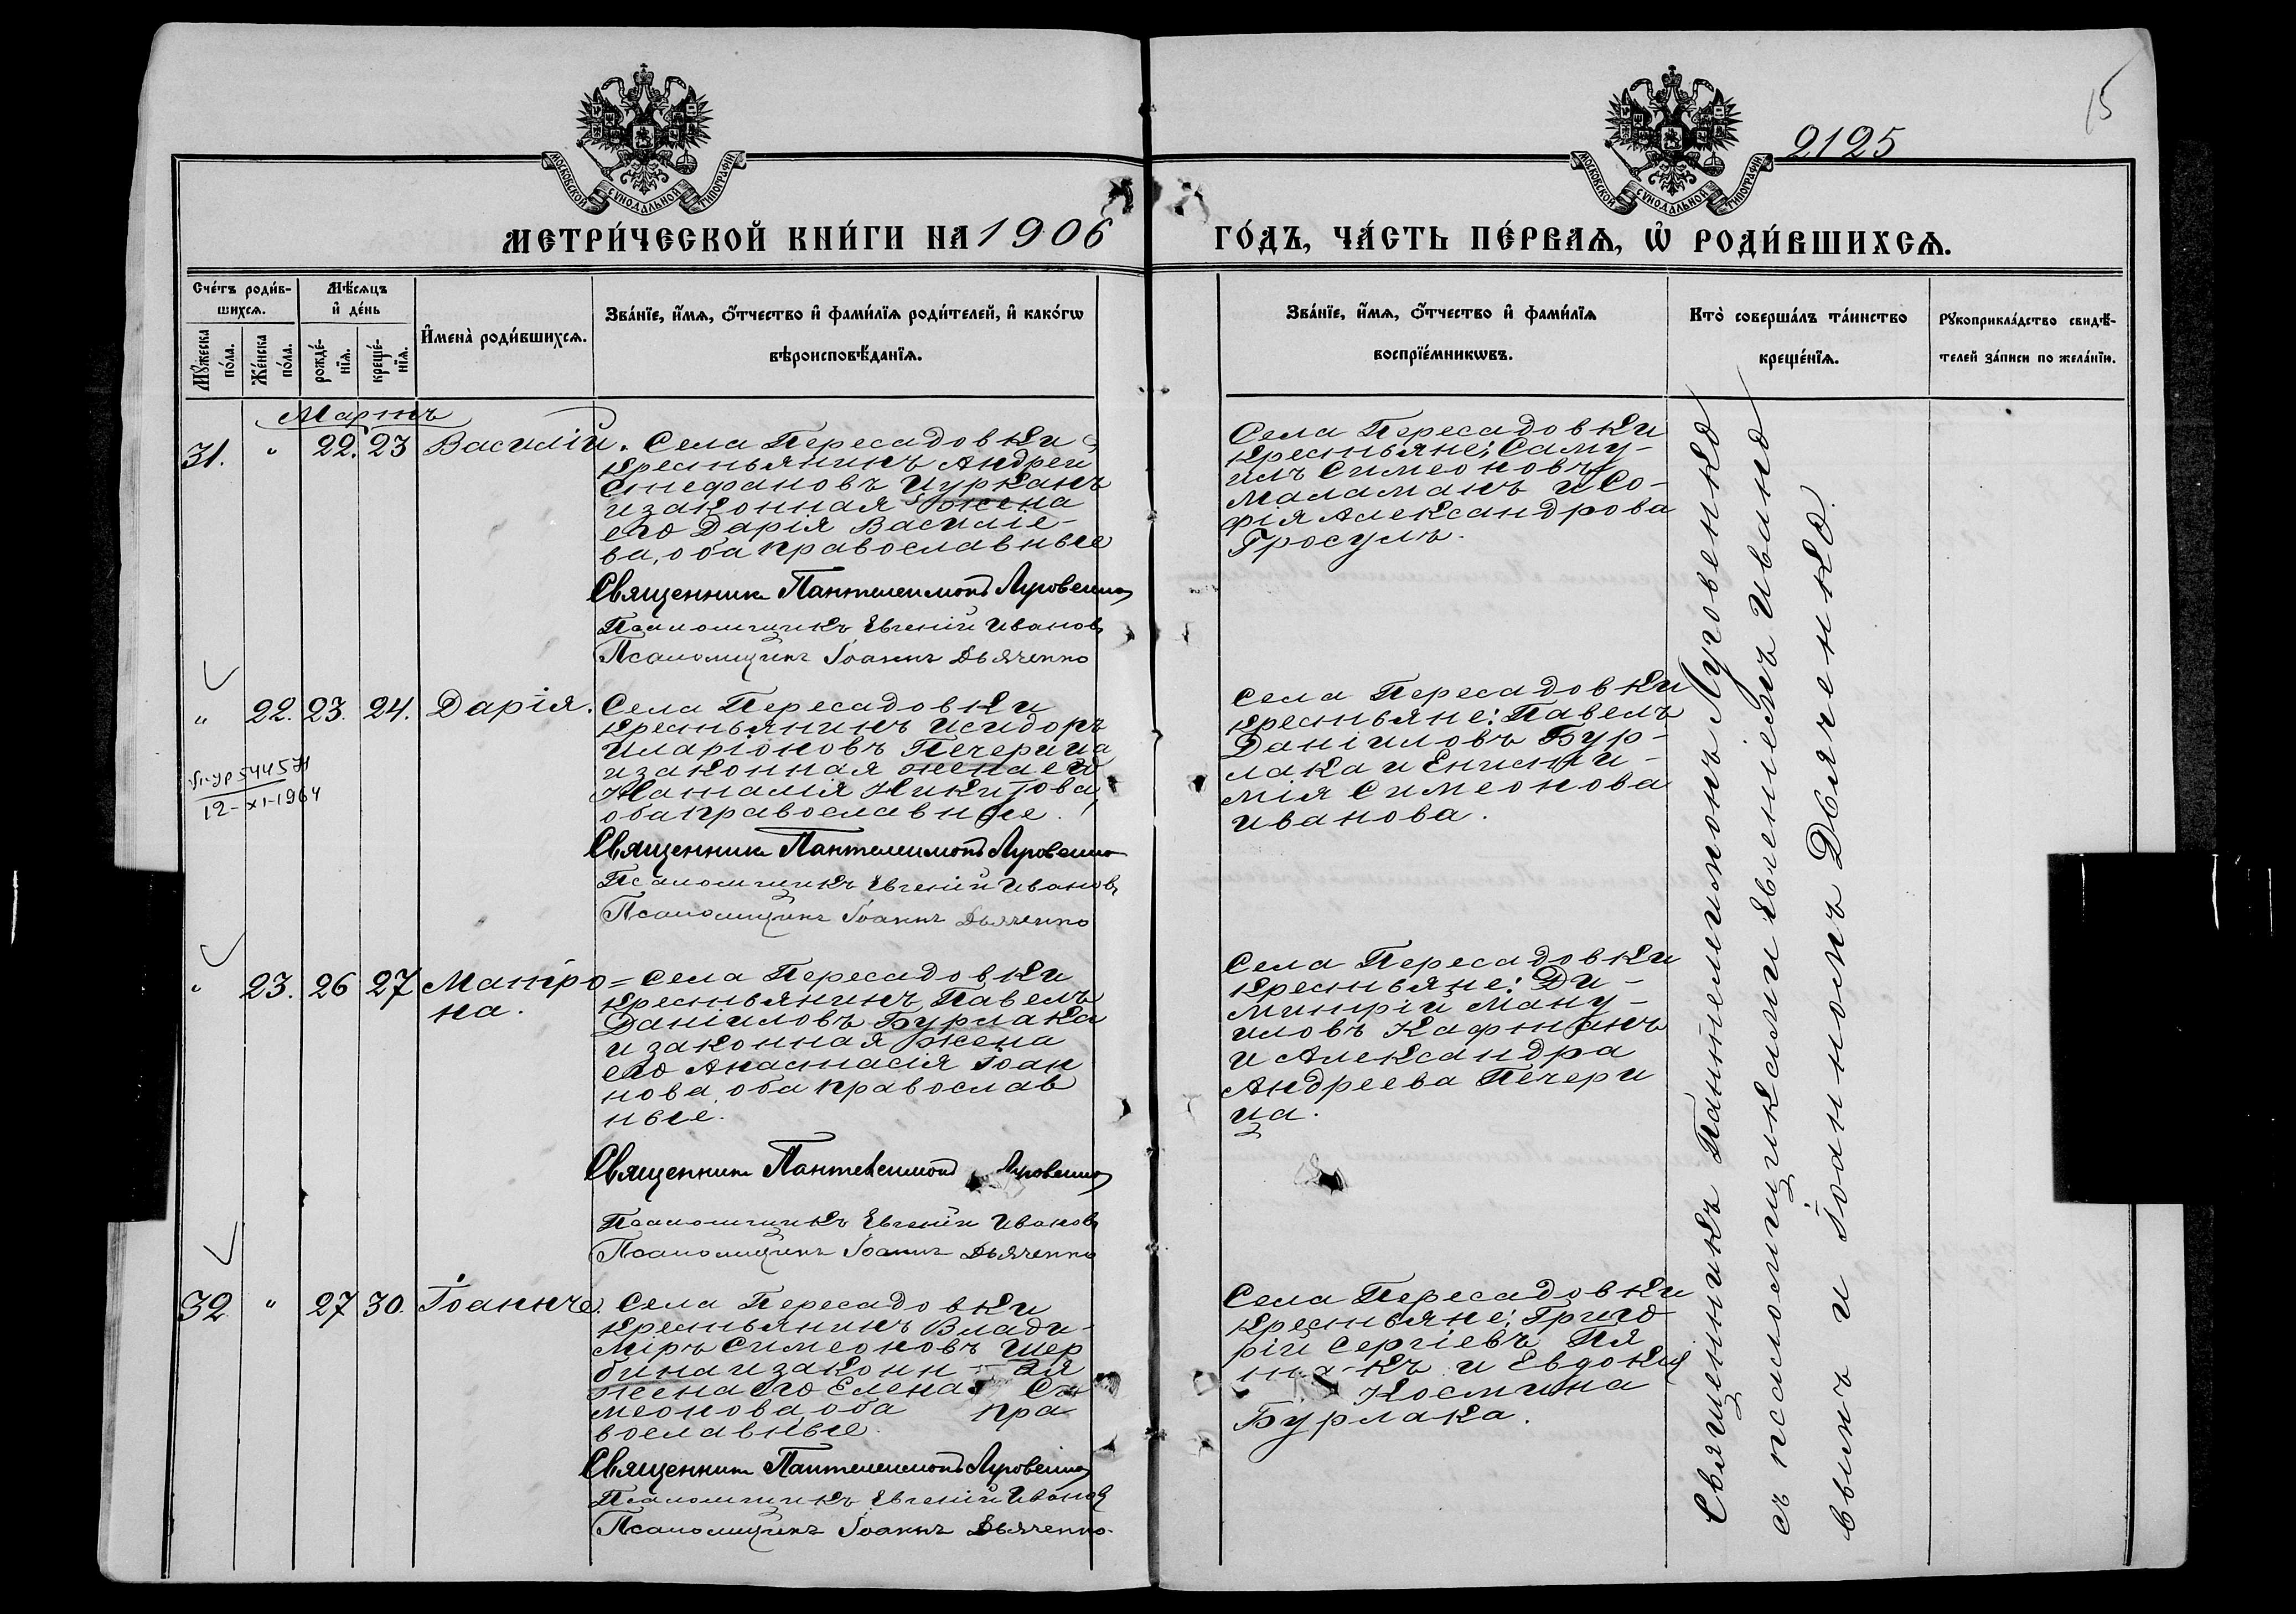 15
2125
МОСКОВСКОЙ СѴНОДАЛЬНОЙ ТИПОГРАФІИ
МОСКОВСКОЙ СѴНОДАЛЬНОЙ ТИПОГРАФІИ
МЕТРИ́ЧЕСКОЙ КНИ́ГИ НА 1906
ГО́ДЪ, ЧА́СТЬ ПЕ́РВАѦ, Ѡ҆ РОДИ́ВШИХСѦ.
Сче́тъ роди́в-
шихсѧ.
Мѣ́сѧцъ
и҆ де́нь
Мꙋ́жеска
по́ла.
Же́нска
по́ла.
рожде́-
нїѧ.
креще́-
нїѧ.
И҆мена̀ роди́вшихсѧ.
Зва́нїе, и҆́мѧ, ѻ҆́тчество и҆ фами́лїѧ роди́телей, и҆ како́гѡ
вѣроисповѣ́данїѧ.
Зва́нїе, и҆́мѧ, ѻ҆́тчество и҆ фами́лїѧ
воспрїе́мникѡвъ.
Кто̀ соверша́лъ та́инство
креще́нїѧ.
Рꙋкоприкла́дство свидѣ́-
телей за́писи по жела́нїю.
Мартъ
31. " 22. 23 Василій.
Села Пересадовки
крестьянинъ Андрей
Стефановъ Цурканъ
и законная жена
его Дарія Василіе-
ва, оба православные
Священникъ Пантелеимонъ Луговенко
Псаломщикъ Евгеній Ивановъ
Псаломщикъ Іоаннъ Дьяченко
Села Пересадовки
крестьяне: Саму-
илъ Симеоновъ
Маламанъ и Со-
фія Александрова
Гросулъ.
" 22. 23. 24. Дарія.
544571
12-XI-1964
Села Пересадовки
крестьянинъ Исидоръ
Иларіоновъ Печерица
и законная жена его
Наталія Никитова,
оба православные.
Священникъ Пантелеимонъ Луговенко
Псаломщикъ Евгеній Ивановъ
Псаломщикъ Іоаннъ Дьяченко
Села Пересадовки
крестьяне: Павелъ
Даніиловъ Бур-
лака и Енисти-
мія Симеонова
Иванова.
" 23. 26 27 Матро=
на.
Села Пересадовки
крестьянинъ Павелъ
Даніиловъ Бурлака
и законная жена
его Анастасія Іоан
нова, оба православ
ные.
Священникъ Пантелеимонъ Луговенко
Псаломщикъ Евгеній Ивановъ
Псаломщикъ Іоаннъ Дьяченко
Села Пересадовки
крестьяне: Ди-
митрій Ману-
иловъ Кафтанъ
и Александра
Андреева Печери
ца.
32. " 27 30. Іоаннъ.
Села Пересадовки
крестьянинъ Влади-
міръ Симеоновъ Щер
бина и законн ая
жена его Елена Си
меонова оба пра
вославные.
Священникъ Пантелеимонъ Луговенко
Псаломщикъ Евгеній Ивановъ
Псаломщикъ Іоаннъ Дьяченко.
Села Пересадовки
крестьяне: Григо
рій Сергіевъ Пя
и Евдокія
Космина
Бурлака.
Священникъ Пантелеимонъ Луговенко
съ псаломщиками Евгеніемъ Ивано
вымъ и Іоанномъ Дьяченко.